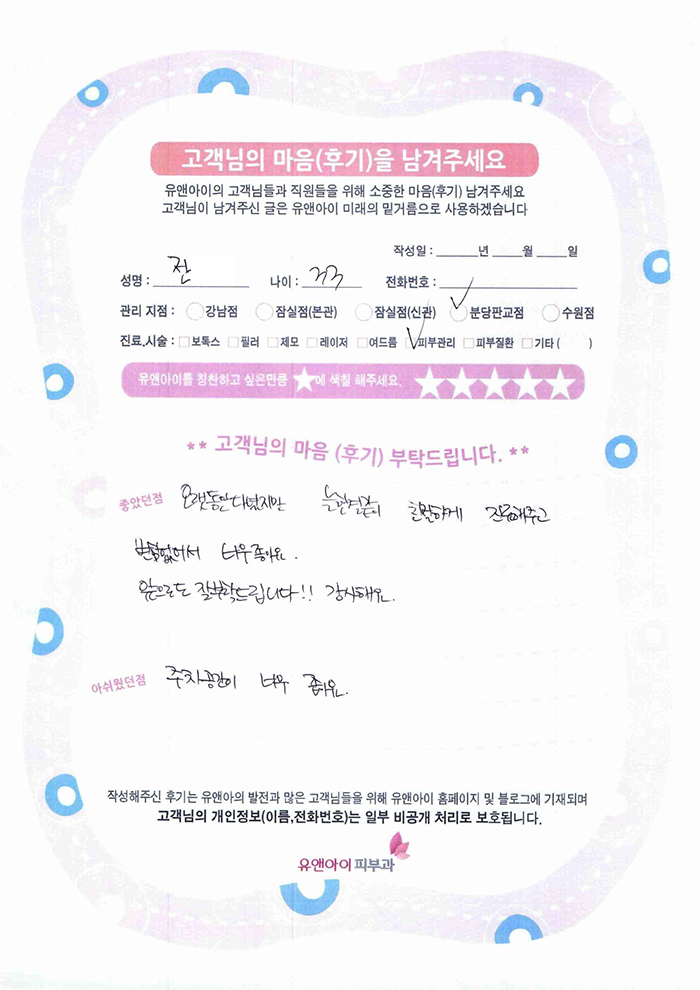 고객님의 마음(후기)을 남겨주세요
유앤아이의 고객님들과 직원들을 위해 소중한 마음(후기) 남겨주세요
고객님이 남겨주신 글은 유앤아이 미래의 밑거름으로 사용하겠습니다
작성일 : ______년 _____월 _____일
성명 : 전 나이 : 33 전화번호 :
관리 지점 : 강남점 잠실점(본관) 잠실점(신관) 분당판교점 수원점
진료.시술 : 보톡스 필러 제모 레이저 여드름 피부관리 피부질환 기타 ( )
유앤아이를 칭찬하고 싶은만큼 ★에 색칠 해주세요. ★★★★★
** 고객님의 마음 (후기) 부탁드립니다. **
좋았던점 오랫동안 다녔지만 늘한결같이 친절하게 진료해주고
변함없어서 너무 좋아요.
앞으로도 잘부탁드립니다!! 감사해요.
아쉬웠던점 주차공간이 너무 좁아요.
작성해주신 후기는 유앤아의 발전과 많은 고객님들을 위해 유앤아이 홈페이지 및 블로그에 기재되며
고객님의 개인정보(이름,전화번호)는 일부 비공개 처리로 보호됩니다.
유앤아이피부과